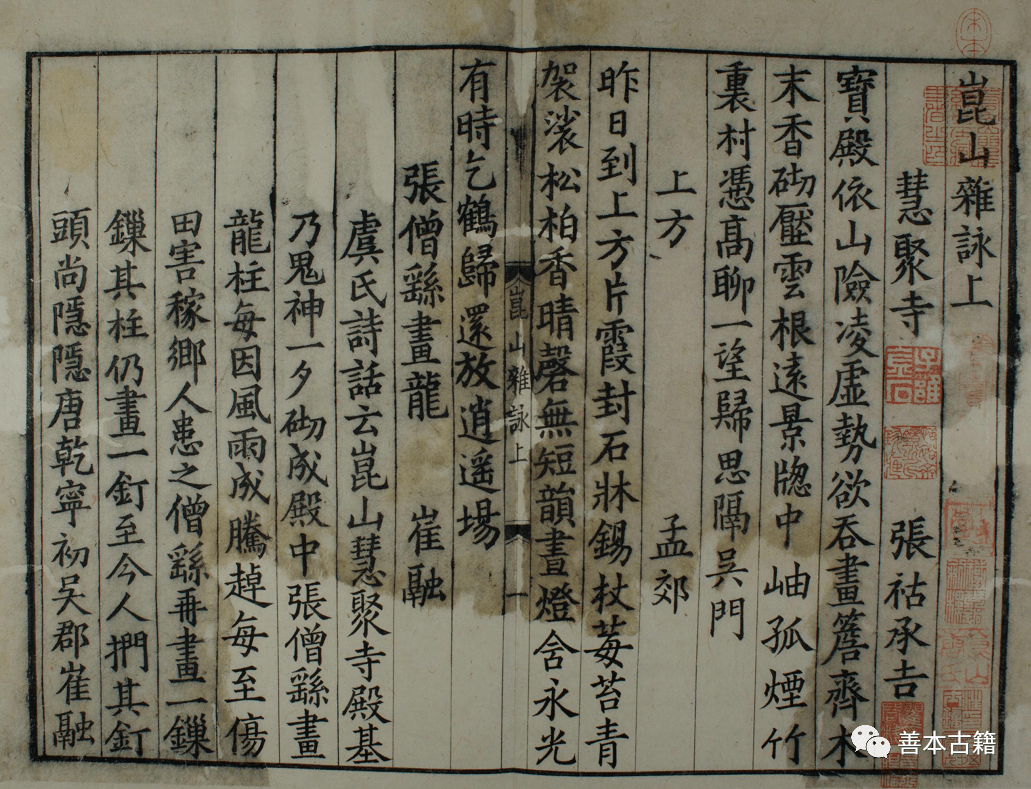 崑山雜詠上
慧聚寺 張祜承吉
寶殿依山險凌虛勢欲吞畫簷齊木
末香砌壓雲根遠景牕中岫孤煙竹
裏村憑高聊一望歸思隔吳門
上方 孟郊
昨日到上方片霞封石牀錫杖莓苔青
袈裟松柏香晴磬無短韻晝燈含永光
有時乞鶴歸還放逍遥場
崑山雜詠上 一
張僧繇畫龍 崔融
虞氏詩話云崑山慧聚寺殿基
乃鬼神一夕砌成殿中張僧繇畫
龍柱每因風雨成騰趠每至傷
田害稼鄉人患之僧繇再畫一鏁
鏁其柱仍畫一釘至今人捫其釘
頭尚隱隱唐乾寧初吳郡崔融
善本古籍